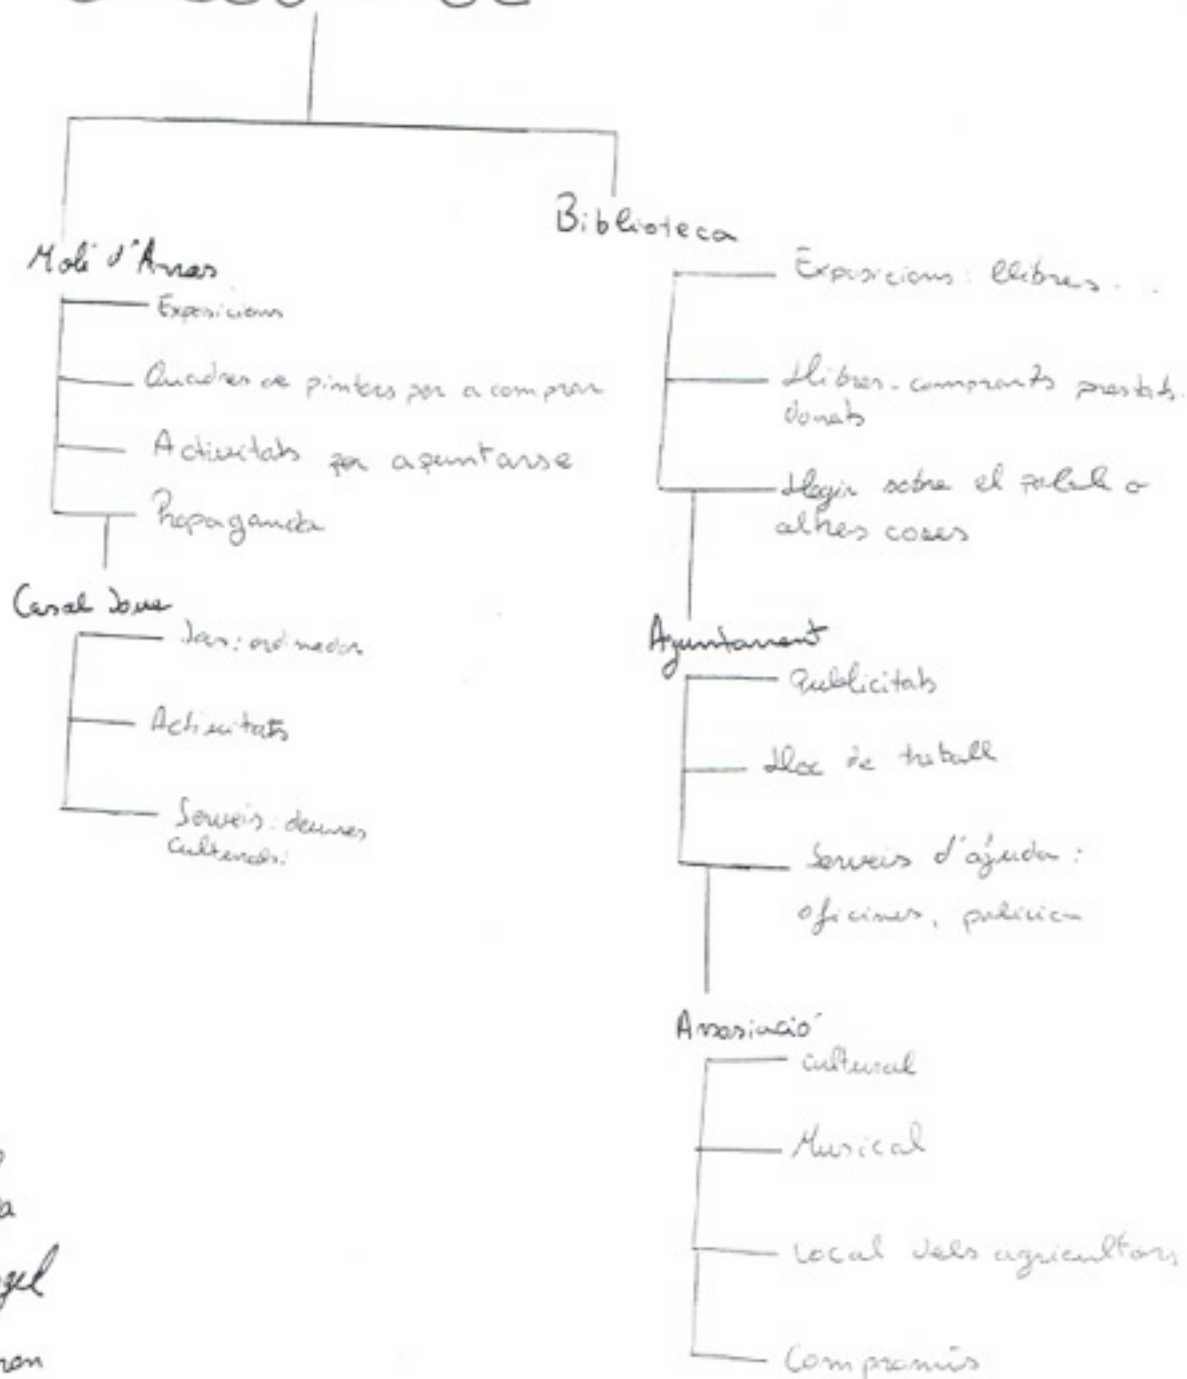 Biblioteca
Molí d'Arras
Exposicions
Quadres de pintors per a comprar
Activitats per apuntarse
Propaganda
Casal Jove
ordinador
Activitats
Serveis: deures
culturals:
Exposicions: llibres...
Llibres-comprants prestats.
donats
Llegir sobre el poble o
altres coses
Ajuntament
Publicitats
Lloc de treball
Serveis d'ajuda:
oficines, policia
Assosiació
cultural
Musical
Local dels agricultors
Compromís